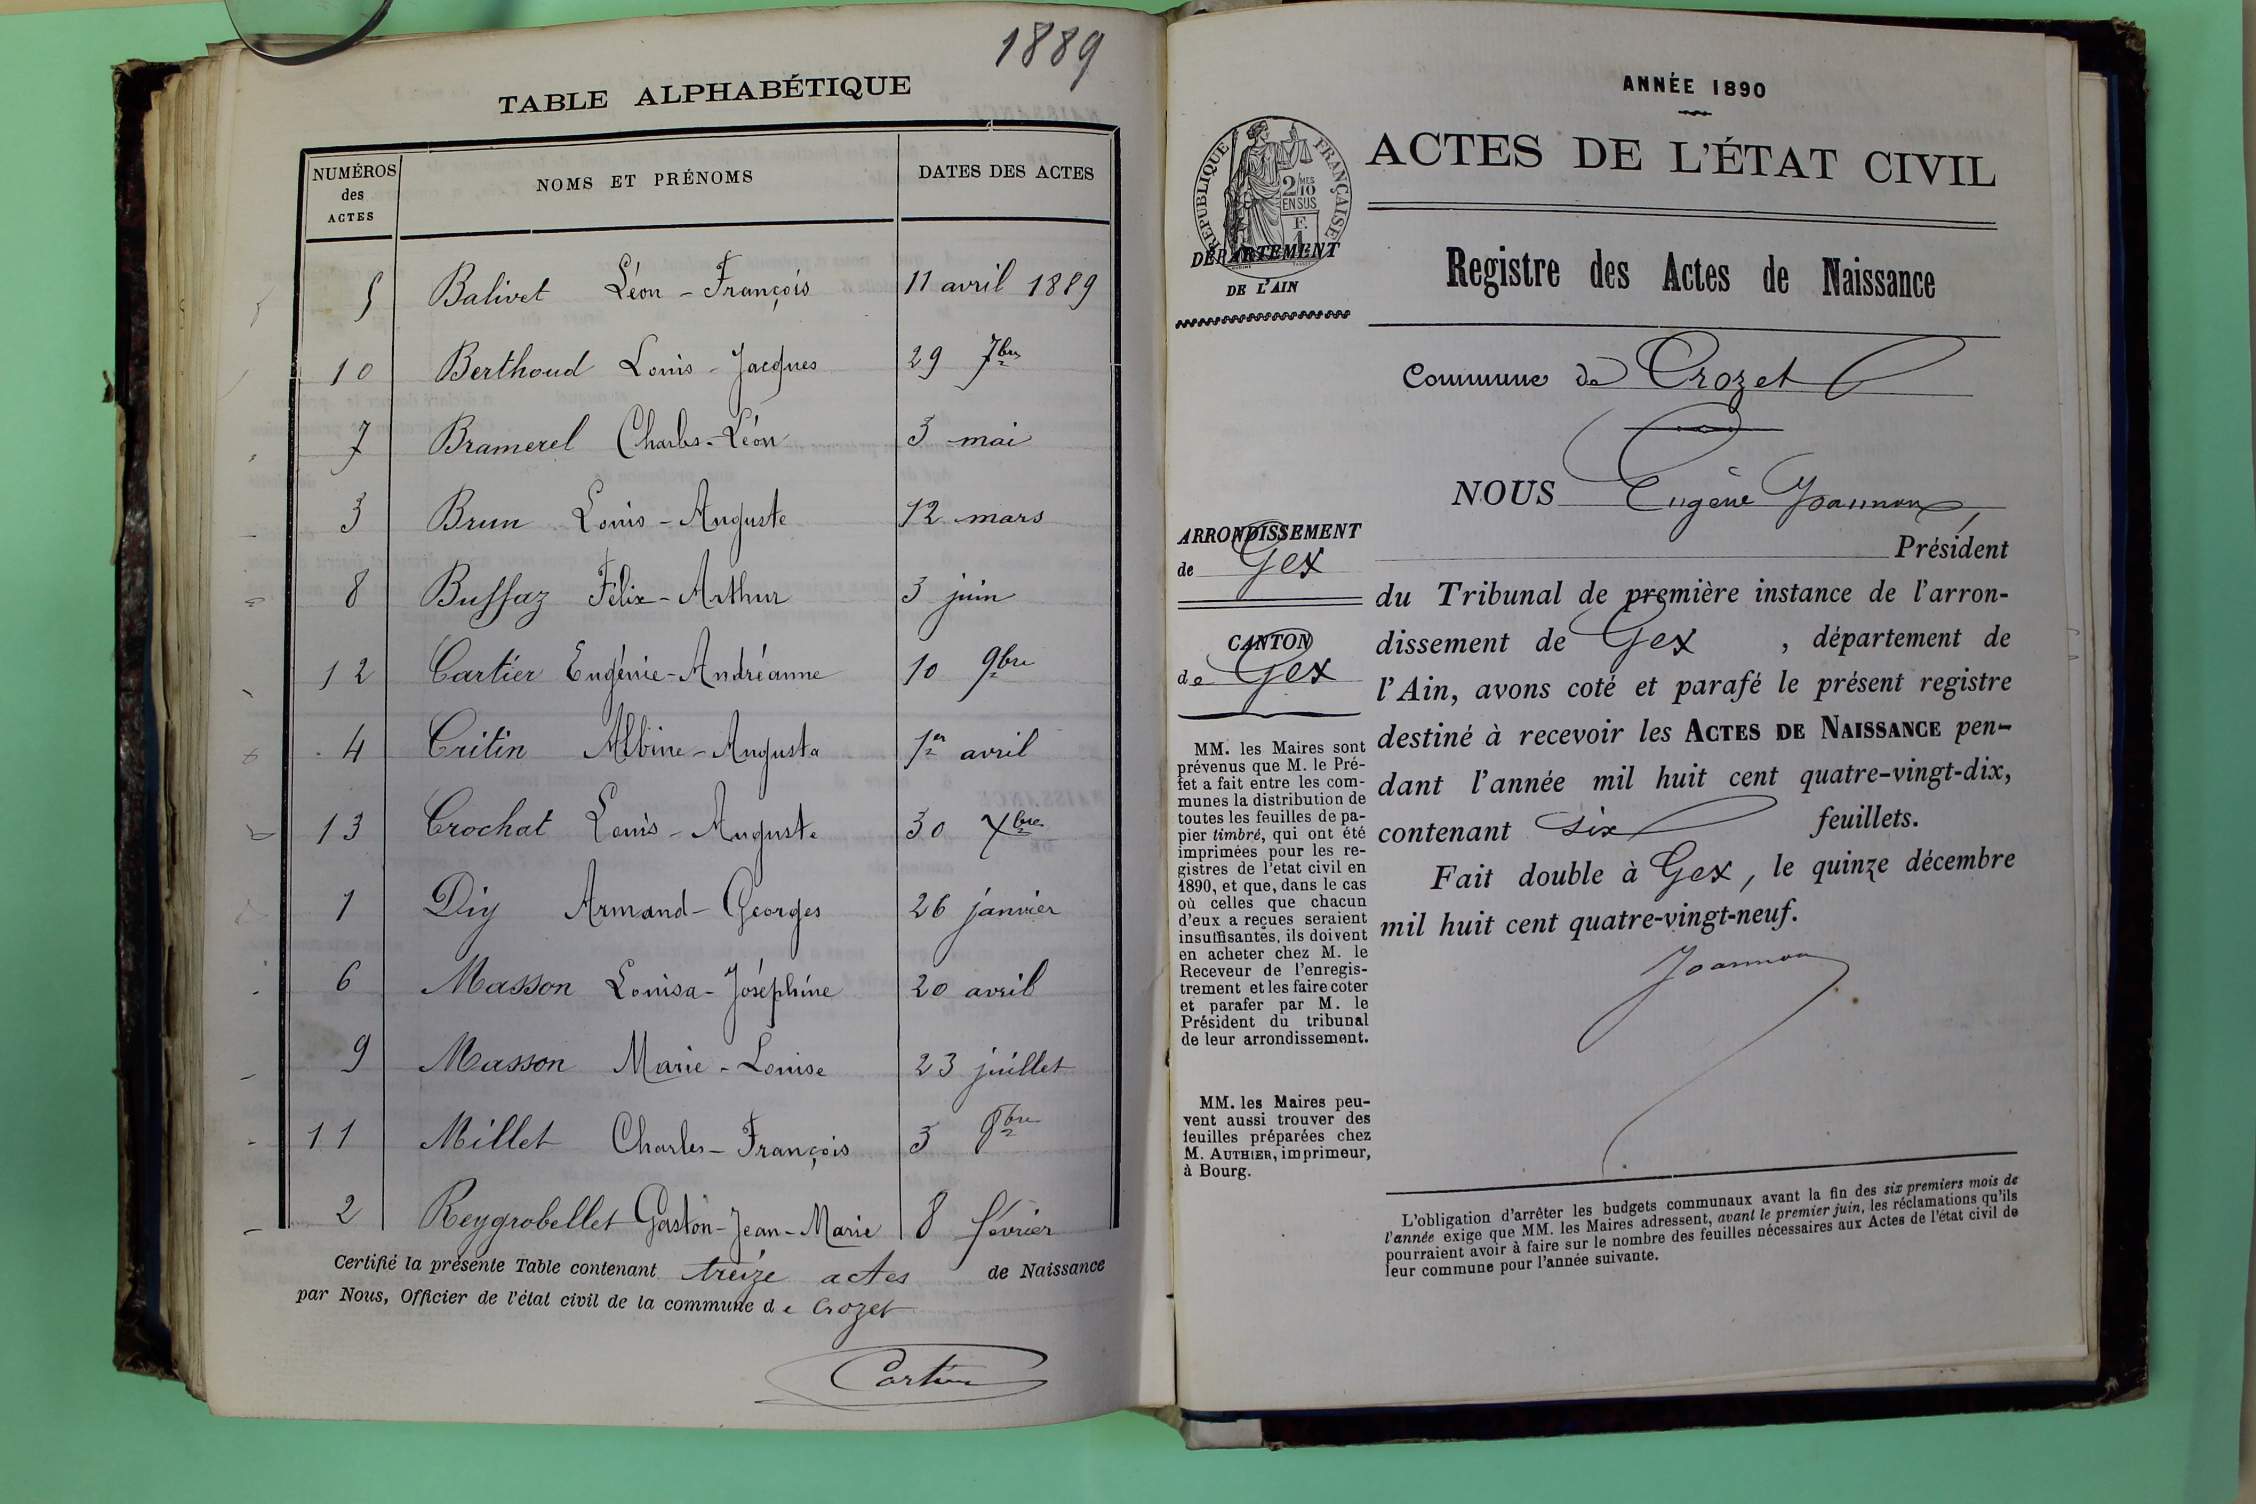 1889
TABLE ALPHABÉTIQUE
NUMÉROS des ACTES NOMS ET PRÉNOMS DATES DES ACTES
5 Balivet Léon-François 11 avril 1889
10 Berthoud Louis-Jacques 29 7bre
7 Bramerel Charles-Léon 3 mai
3 Brun Louis-Auguste 12 mars
8 Buffaz Félix-Arthur 3 juin
12 Cartier Eugénie-Andréanne 10 9bre
4 Critin Albine-Augusta 1er avril
13 Crochat Louis-Auguste 30 Xbre
1 Diy Armand-Georges 26 janvier
6 Masson Louisa-Joséphine 20 avril
9 Masson Marie-Louise 23 juillet
11 Millet Charles-François 3 8bre
2 Reygrobellet Gaston-Jean-Marie 8 février
Certifié la présente Table contenant treize actes de Naissance
par Nous, Officier de l'état civil de la commune de Crozet
Cartier
ANNÉE 1890
ACTES DE L'ÉTAT CIVIL
RÉPUBLIQUE FRANÇAISE
2/10MES
EN SUS
F.
1
DÉPARTEMENT
DE L'AIN
Registre des Actes de Naissance
Commune de Crozet
NOUS Eugène Joannon,
Président
ARRONDISSEMENT
de Gex
CANTON
de Gex
du Tribunal de première instance de l'arron-
dissement de Gex , département de
l'Ain, avons coté et parafé le présent registre
destiné à recevoir les ACTES DE NAISSANCE pen-
dant l'année mil huit cent quatre-vingt-dix,
contenant six feuillets.
Fait double à Gex, le quinze décembre
mil huit cent quatre-vingt-neuf.
Joannon
MM. les Maires sont
prévenus que M. le Pré-
fet a fait entre les com-
munes la distribution de
toutes les feuilles de pa-
pier timbré, qui ont été
imprimées pour les re-
gistres de l'etat civil en
1890, et que, dans le cas
où celles que chacun
d'eux a reçues seraient
insuffisantes, ils doivent
en acheter chez M. le
Receveur de l'enregis-
trement et les faire coter
et parafer par M. le
Président du tribunal
de leur arrondissement.
MM. les Maires peu-
vent aussi trouver des
feuilles préparées chez
M. AUTHIER, imprimeur,
à Bourg.
L'obligation d'arrêter les budgets communaux avant la fin des six premiers mois de
l'année exige que MM. les Maires adressent, avant le premier juin, les réclamations qu'ils
pourraient avoir à faire sur le nombre des feuilles nécessaires aux Actes de l'état civil de
leur commune pour l'année suivante.